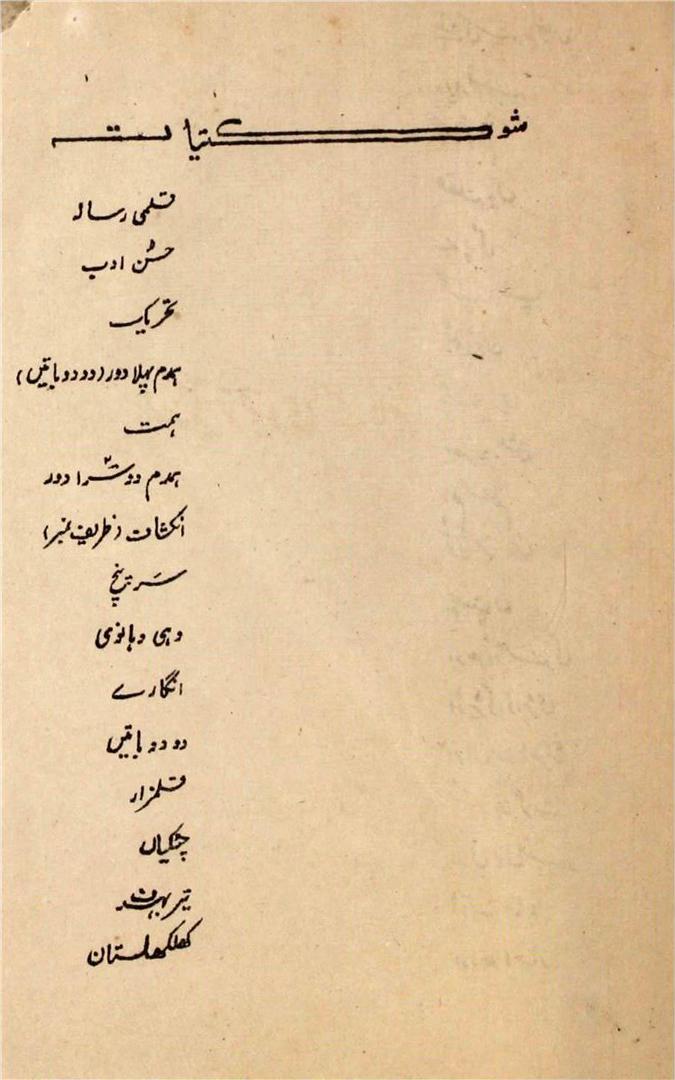 شوکتیات
قلمی رسالہ
حسُن ادب
تحریک
ہمدم پہلا دور (دو دو باتیں)
ہمت
ہمدم دوسرا دور
انکشاف (ظریف نمبر)
سرپنچ
وہی وہانوی
انگارے
دو دو باتیں
قلمزار
چٹکیاں
تیر بہدف
کھلکھلستان